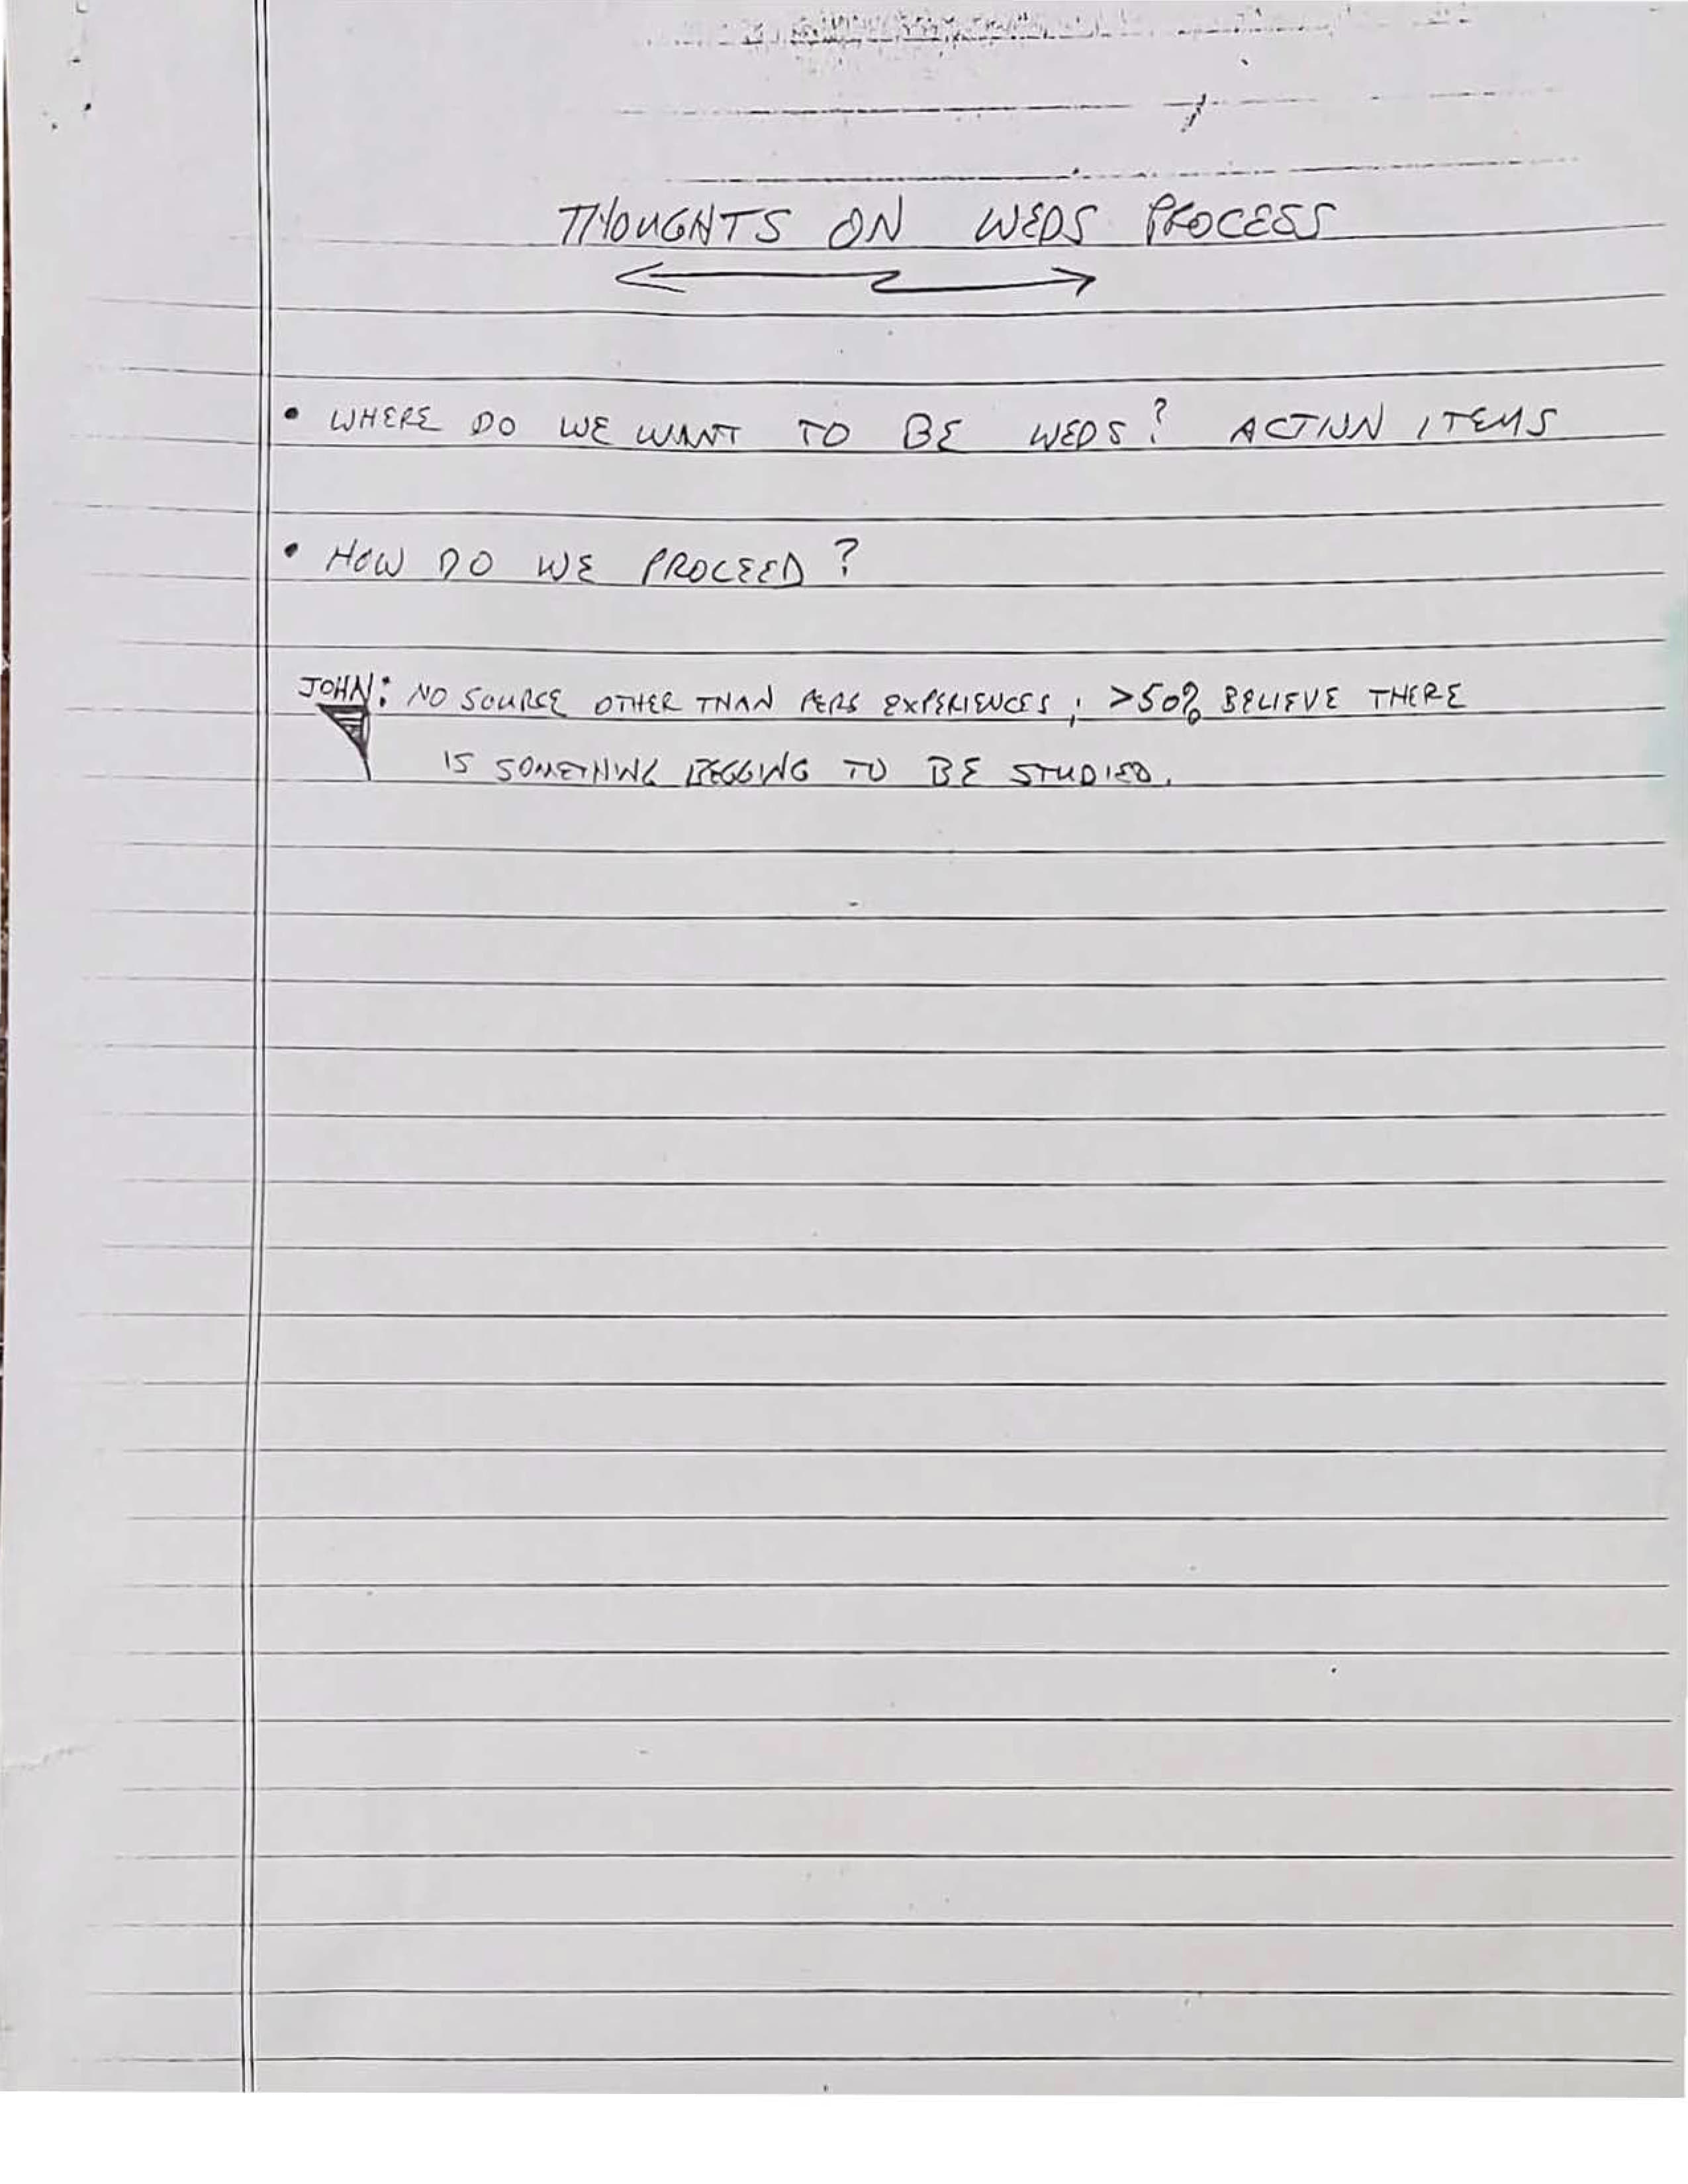 THOUGHTS ON WEDS PROCESS
• WHERE DO WE WANT TO BE WEDS? ACTION ITEMS
• HOW DO WE PROCEED?
JOHN: NO SOURCE OTHER THAN PERS EXPERIENCES; >50% BELIEVE THERE
IS SOMETHING BEGGING TO BE STUDIED.